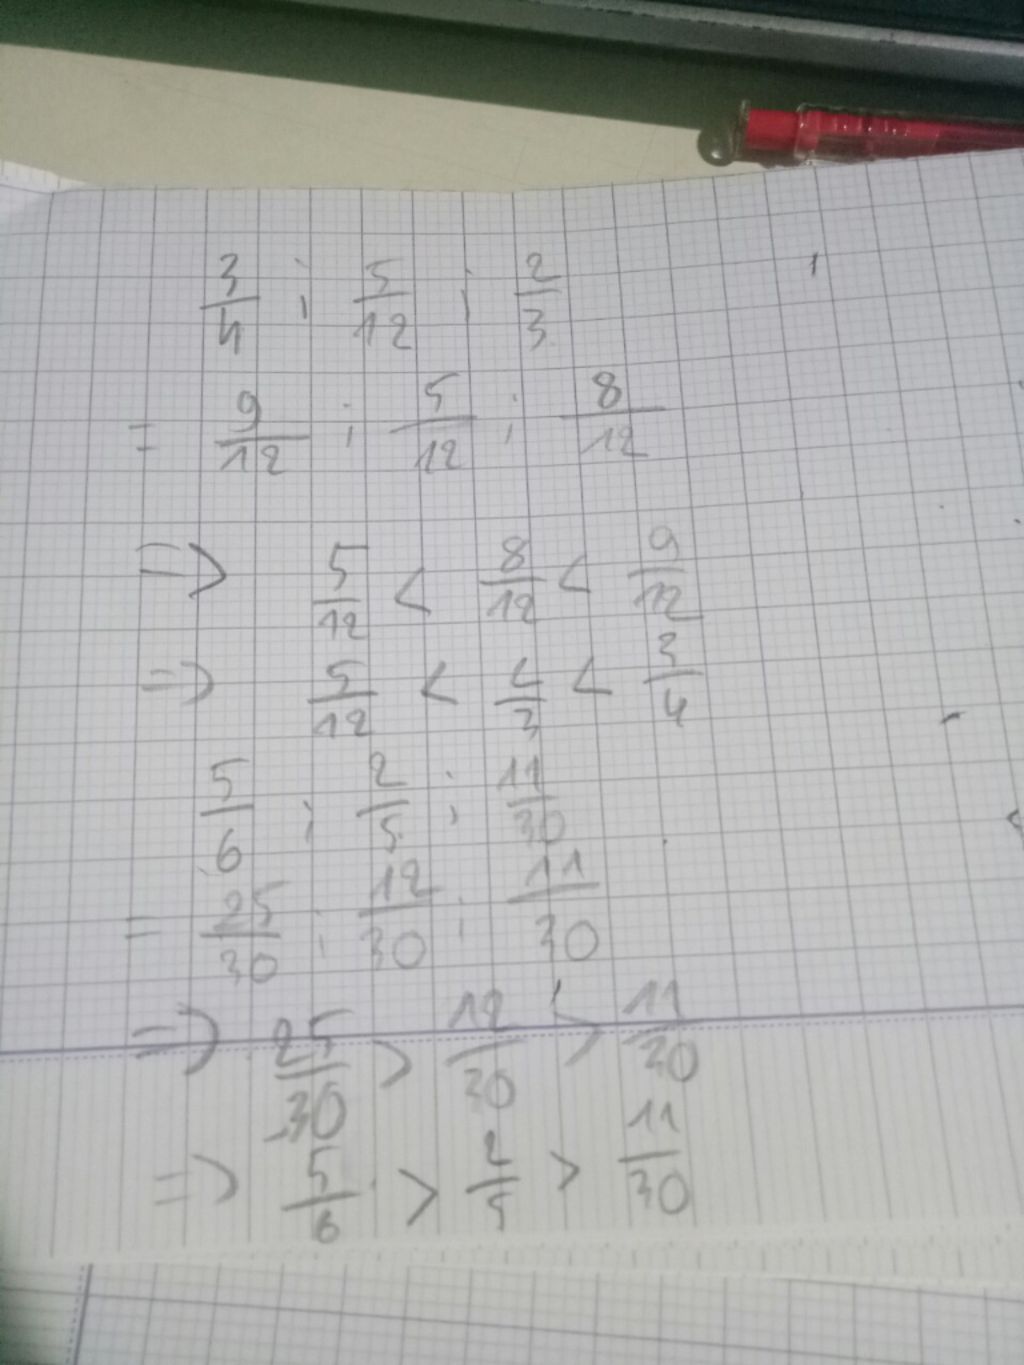 3/4 ; 5/12 ; 2/3
= 9/12 ; 5/12 ; 8/12
=> 5/12 < 8/12 < 9/12
=> 5/12 < 2/3 < 3/4
5/6 ; 2/5 ; 11/30
= 25/30 ; 12/30 ; 11/30
=> 25/30 > 12/30 > 11/30
=> 5/6 > 2/5 > 11/30